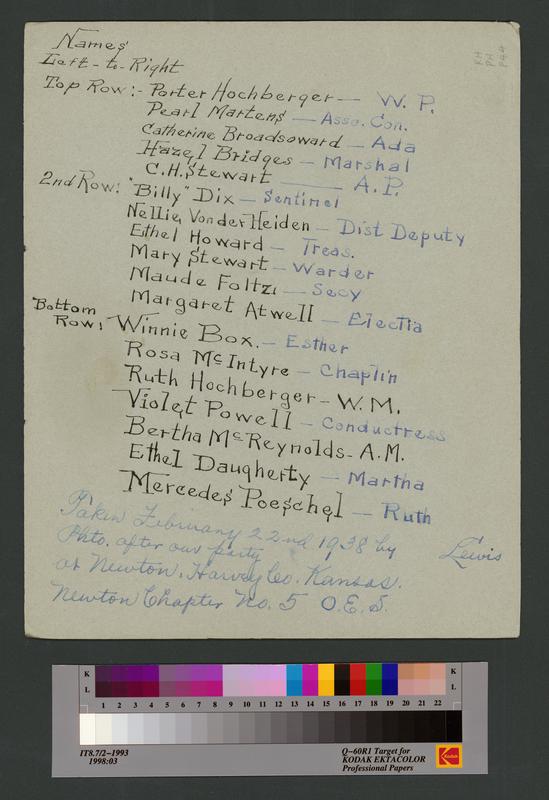 Names
Left-to-Right
Top Row:- Porter Hochberger — W. P.
Pearl Martens — Asso. Con.
Catherine Broadsoward — Ada
Hazel Bridges — Marshal
C.H. Stewart — A.P.
2nd Row: "Billy" Dix — Sentinel
Nellie VonderHeiden — Dist Deputy
Ethel Howard — Treas.
Mary Stewart — Warder
Maude Foltz — Secy
Margaret Atwell — Electia
Bottom
Row: Winnie Box. — Esther
Rosa McIntyre — Chaplin
Ruth Hochberger - W.M.
Violet Powell — Conductress
Bertha McReynolds - A.M.
Ethel Daugherty — Martha
Mercedes Poeschel — Ruth
Taken February 22nd 1938 by Lewis
Photo. after our party
at Newton, Harvey Co. Kansas.
Newton Chapter No. 5 O.E.S.
RH
PH
P44
K
L
1 2 3 4 5 6 7 8 9 10 11 12 13 14 15 16 17 18 19 20 21 22
K
L
IT8.7/2-1993
1998:03
Q-60R1 Target for
KODAK EKTACOLOR
Professional Papers
Kodak